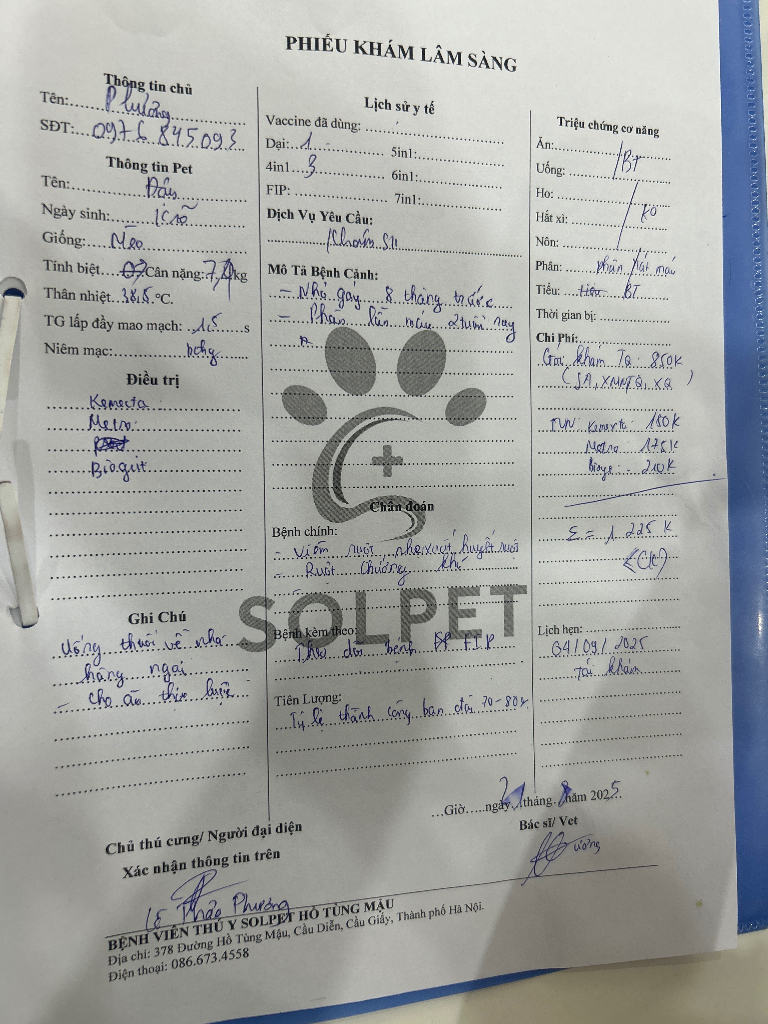 PHIẾU KHÁM LÂM SÀNG
Thông tin chủ
Tên: Phương
SĐT: 0976 845093
Thông tin Pet
Tên: Đậu
Ngày sinh:
Giống: Mèo
Tính biệt Cân nặng: kg
Thân nhiệt 38,5 °C.
TG lấp đầy mao mạch: 1,5 s
Niêm mạc: hồng
Điều trị
Kemerta
Metro
Biogut
Ghi Chú
Uống thuốc về nhà
hàng ngày
- cho ăn
Lịch sử y tế
Vaccine đã dùng:
Dại: 1 5in1:
4in1 3 6in1:
FIP: 7in1:
Dịch Vụ Yêu Cầu:
Khám
Mô Tả Bệnh Cảnh:
- Nhổ 8 tháng trước
- Phân lẫn máu 2 tuần nay
Chẩn đoán
Bệnh chính:
- Viêm ruột, xuất huyết ruột
- Ruột chướng khí
Bệnh kèm theo:
Theo dõi bệnh FIP
Tiên Lượng:
Tỷ lệ thành công ban đầu 70-80%
Triệu chứng cơ năng
Ăn:
Uống: BT
Ho:
Hắt xì: KO
Nôn:
Phân: phân nát máu
Tiểu: BT
Thời gian bị:
Chi Phí:
Gói khám TQ: 850K
(SA, XNMTQ, XQ)
Kemerta: 180K
Metro: 175K
210K
Σ = 1 225 K
(CK)
Lịch hẹn:
04/09/2025
Tái khám
...Giờ.....ngày 21 tháng 8 năm 2025
Chủ thú cưng/ Người đại diện
Xác nhận thông tin trên
Bác sĩ/ Vet
Lê Thảo Phương
BỆNH VIỆN THÚ Y SOLPET HỒ TÙNG MẬU
Địa chỉ: 378 Đường Hồ Tùng Mậu, Cầu Diễn, Cầu Giấy, Thành phố Hà Nội.
Điện thoại: 086.673.4558
SOLPET